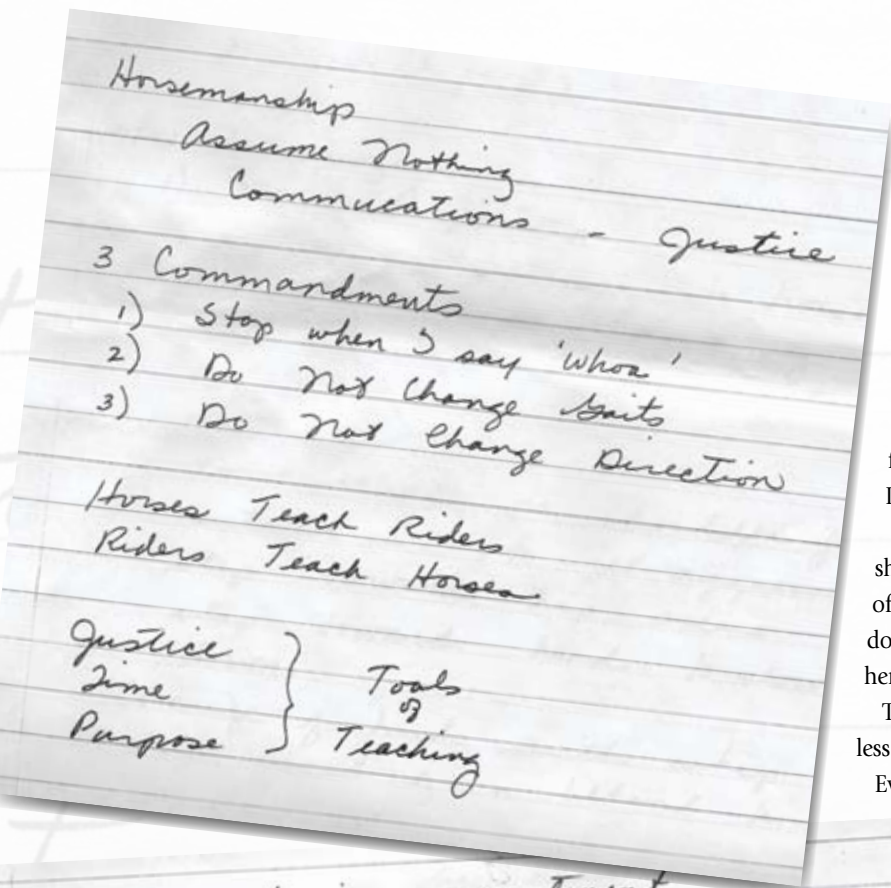 Horsemanship
Assume Nothing
Commucations - Justice
3 Commandments
1) Stop when I say 'whoa'
2) Do Not Change Gaits
3) Do Not Change Direction
Horses Teach Riders
Riders Teach Horses
Justice
Time
Purpose
} Tools
of
Teaching
sh
of
do
her
T
less
Ev